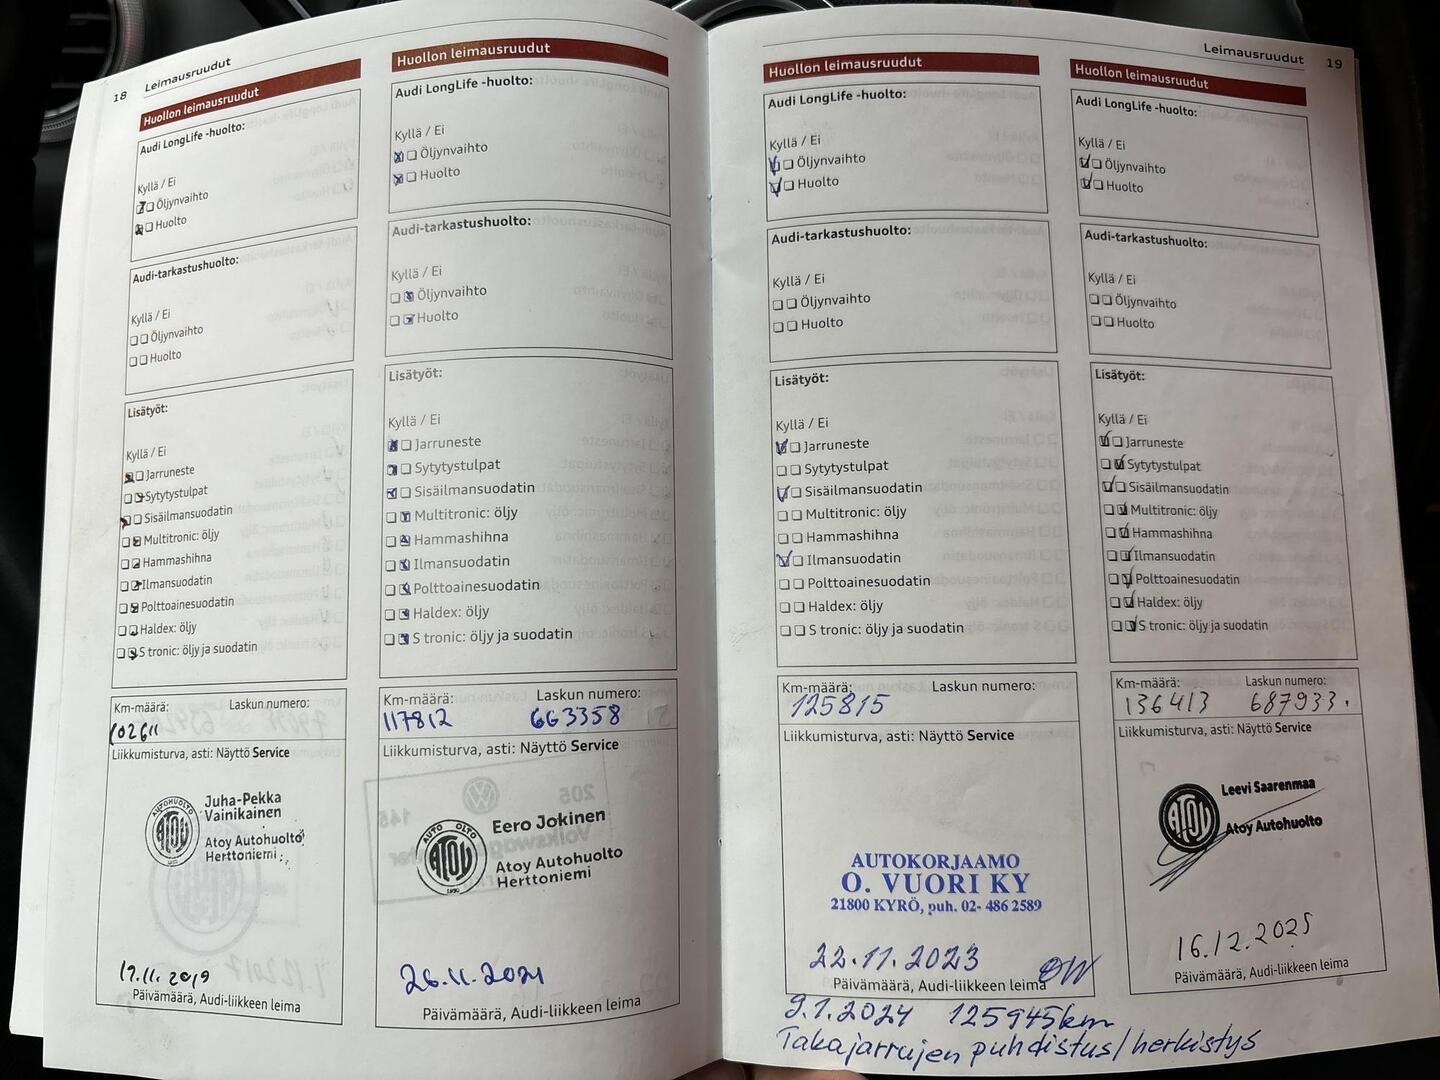 18 Leimausruudut
Huollon leimausruudut
Audi LongLife -huolto:
Kyllä / Ei
Öljynvaihto
Huolto
Audi-tarkastushuolto:
Kyllä / Ei
Öljynvaihto
Huolto
Lisätyöt:
Kyllä / Ei
Jarruneste
Sytytystulpat
Sisäilmansuodatin
Multitronic: öljy
Hammashihna
Ilmansuodatin
Polttoainesuodatin
Haldex: öljy
S tronic: öljy ja suodatin
Km-määrä: Laskun numero:
102611
Liikkumisturva, asti: Näyttö Service
AUTOHUOLTO
ATOY
Juha-Pekka
Vainikainen
Atoy Autohuolto
Herttoniemi
19.11.2019
Päivämäärä, Audi-liikkeen leima
Huollon leimausruudut
Audi LongLife -huolto:
Kyllä / Ei
Öljynvaihto
Huolto
Audi-tarkastushuolto:
Kyllä / Ei
Öljynvaihto
Huolto
Lisätyöt:
Kyllä / Ei
Jarruneste
Sytytystulpat
Sisäilmansuodatin
Multitronic: öljy
Hammashihna
Ilmansuodatin
Polttoainesuodatin
Haldex: öljy
S tronic: öljy ja suodatin
Km-määrä: Laskun numero:
117812 663358
Liikkumisturva, asti: Näyttö Service
ATOY
Eero Jokinen
Atoy Autohuolto
Herttoniemi
26.11.2021
Päivämäärä, Audi-liikkeen leima
Leimausruudut 19
Huollon leimausruudut
Audi LongLife -huolto:
Kyllä / Ei
Öljynvaihto
Huolto
Audi-tarkastushuolto:
Kyllä / Ei
Öljynvaihto
Huolto
Lisätyöt:
Kyllä / Ei
Jarruneste
Sytytystulpat
Sisäilmansuodatin
Multitronic: öljy
Hammashihna
Ilmansuodatin
Polttoainesuodatin
Haldex: öljy
S tronic: öljy ja suodatin
Km-määrä: Laskun numero:
125815
Liikkumisturva, asti: Näyttö Service
AUTOKORJAAMO
O. VUORI KY
21800 KYRÖ, puh. 02- 486 2589
22.11.2023
Päivämäärä, Audi-liikkeen leima
9.1.2024 125945km
Takajarrujen puhdistus/herkistys
Huollon leimausruudut
Audi LongLife -huolto:
Kyllä / Ei
Öljynvaihto
Huolto
Audi-tarkastushuolto:
Kyllä / Ei
Öljynvaihto
Huolto
Lisätyöt:
Kyllä / Ei
Jarruneste
Sytytystulpat
Sisäilmansuodatin
Multitronic: öljy
Hammashihna
Ilmansuodatin
Polttoainesuodatin
Haldex: öljy
S tronic: öljy ja suodatin
Km-määrä: Laskun numero:
136413 687933.
Liikkumisturva, asti: Näyttö Service
ATOY
Leevi Saarenmaa
Atoy Autohuolto
16.12.2025
Päivämäärä, Audi-liikkeen leima